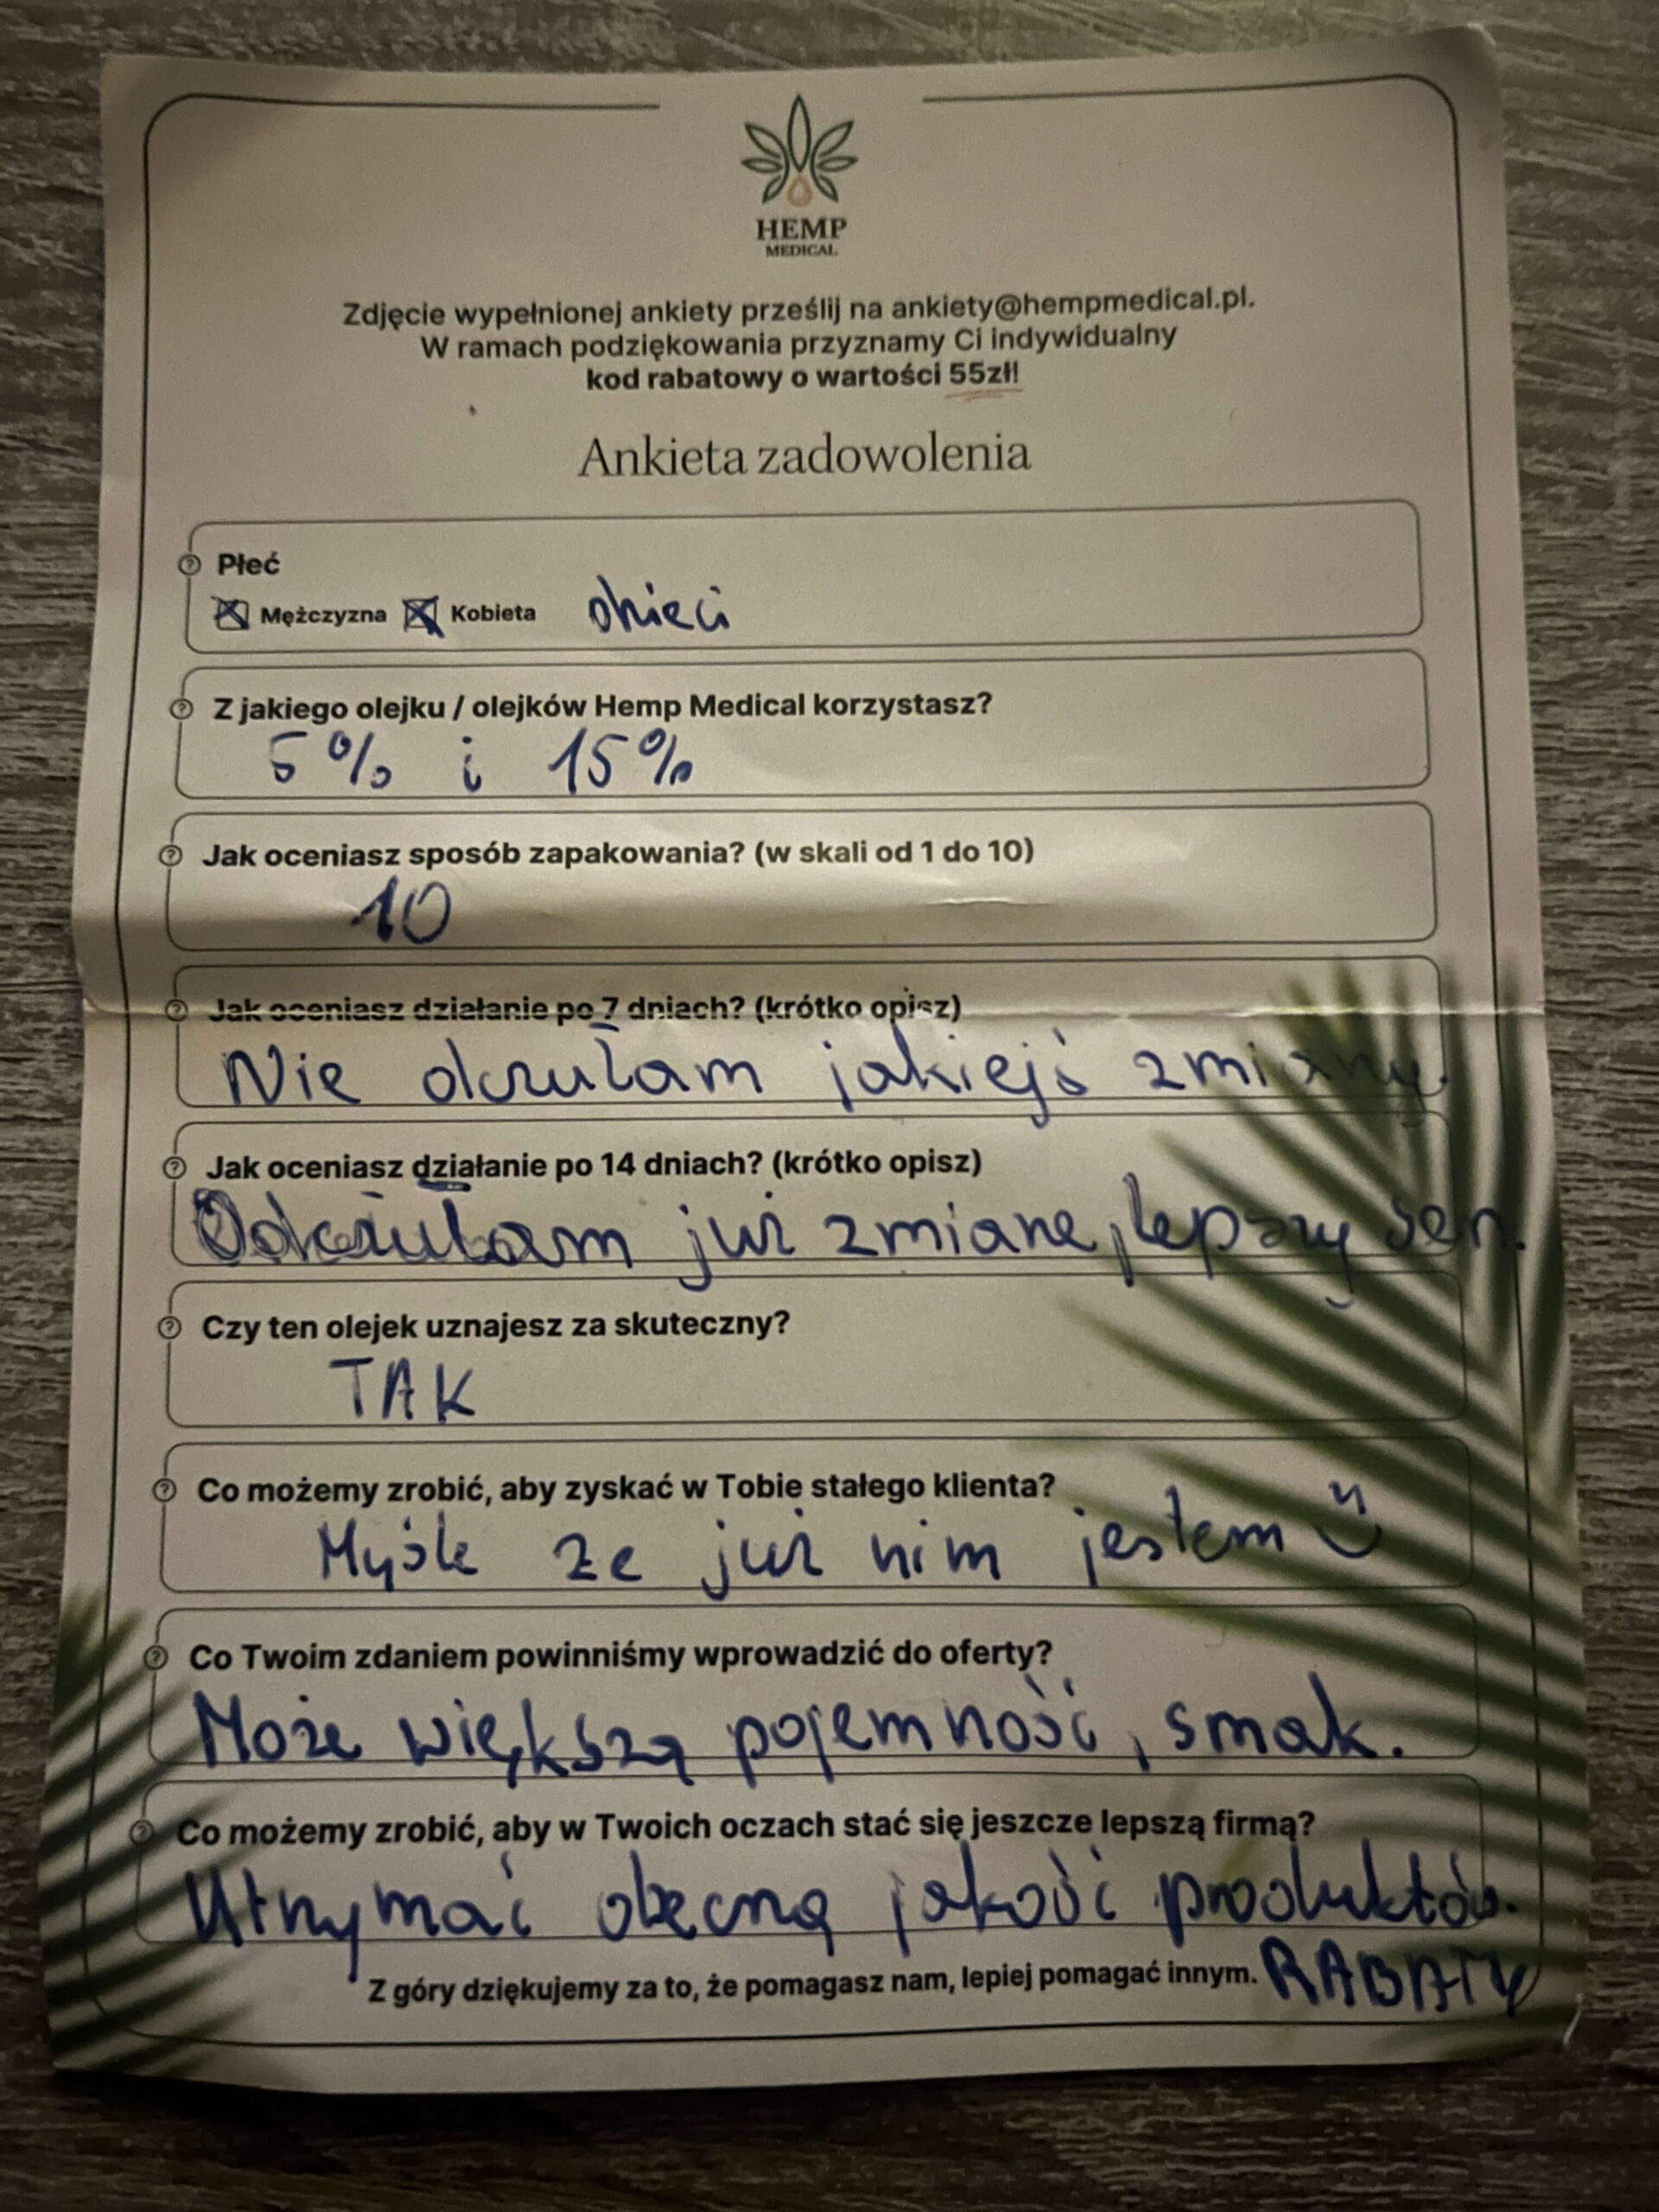 HEMP
MEDICAL
Zdjęcie wypełnionej ankiety prześlij na ankiety@hempmedical.pl.
W ramach podziękowania przyznamy Ci indywidualny
kod rabatowy o wartości 55zł!
Ankieta zadowolenia
Płeć
Mężczyzna Kobieta dzieci
Z jakiego olejku / olejków Hemp Medical korzystasz?
5% i 15%
Jak oceniasz sposób zapakowania? (w skali od 1 do 10)
10
Jak oceniasz działanie po 7 dniach? (krótko opisz)
Nie odczułam jakiejś zmiany.
Jak oceniasz działanie po 14 dniach? (krótko opisz)
Odczułam już zmianę, lepszy sen.
Czy ten olejek uznajesz za skuteczny?
TAK
Co możemy zrobić, aby zyskać w Tobie stałego klienta?
Myśle że już nim jestem
Co Twoim zdaniem powinniśmy wprowadzić do oferty?
Może większą pojemność, smak.
Co możemy zrobić, aby w Twoich oczach stać się jeszcze lepszą firmą?
Utrzymać obecną jakość produktów.
Z góry dziękujemy za to, że pomagasz nam, lepiej pomagać innym. RABATY